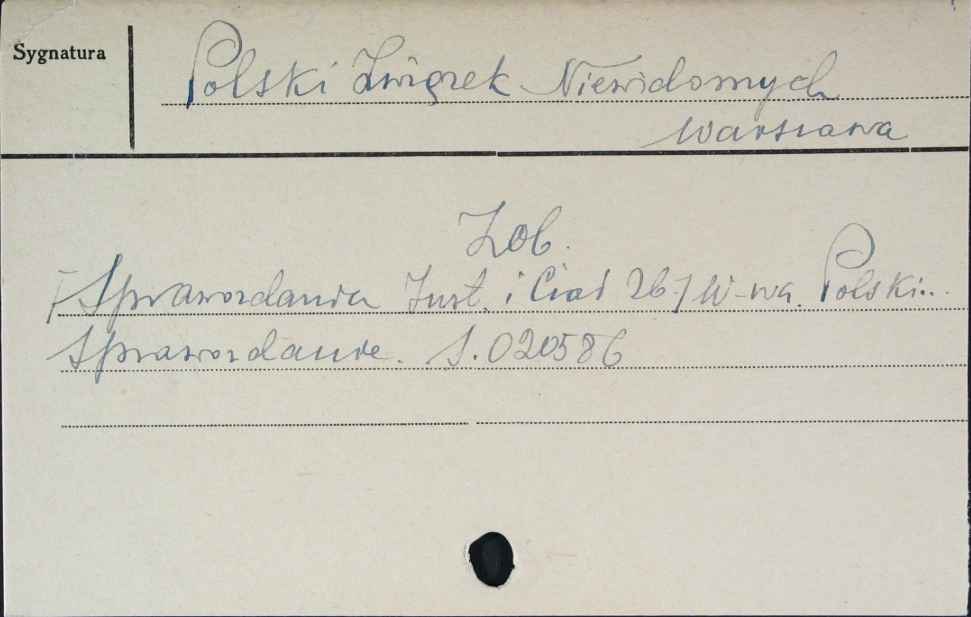 Sygnatura
Polski Związek Niewidomych
Warszawa
Zob.
[Sprawozdania Inst. i Ciał 26] W-wa. Polski..
Sprawozdanie. S.020586